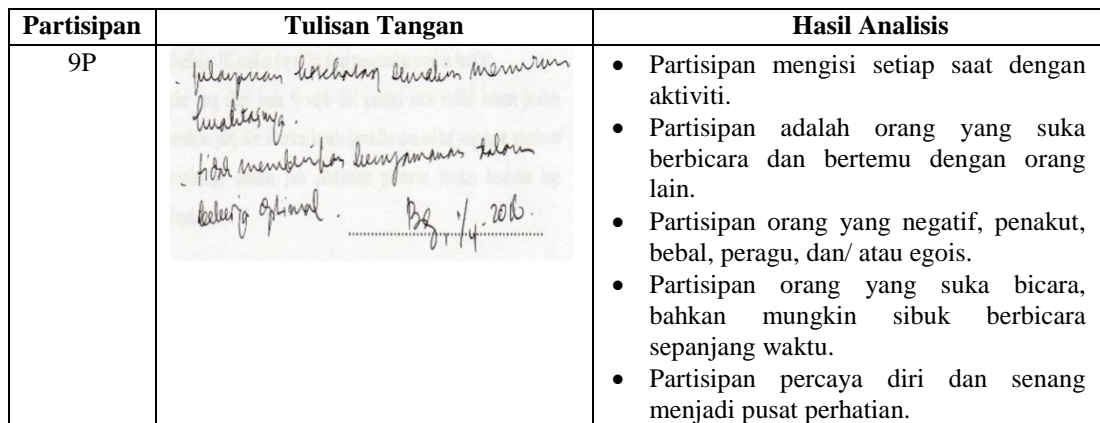 Partisipan Tulisan Tangan Hasil Analisis
9P
- pelayanan kesehatan semakin menurun
kualitasnya.
- tidak memberikan kenyamanan dalam
bekerja optimal.
1/4.
• Partisipan mengisi setiap saat dengan
aktiviti.
• Partisipan adalah orang yang suka
berbicara dan bertemu dengan orang
lain.
• Partisipan orang yang negatif, penakut,
bebal, peragu, dan/ atau egois.
• Partisipan orang yang suka bicara,
bahkan mungkin sibuk berbicara
sepanjang waktu.
• Partisipan percaya diri dan senang
menjadi pusat perhatian.